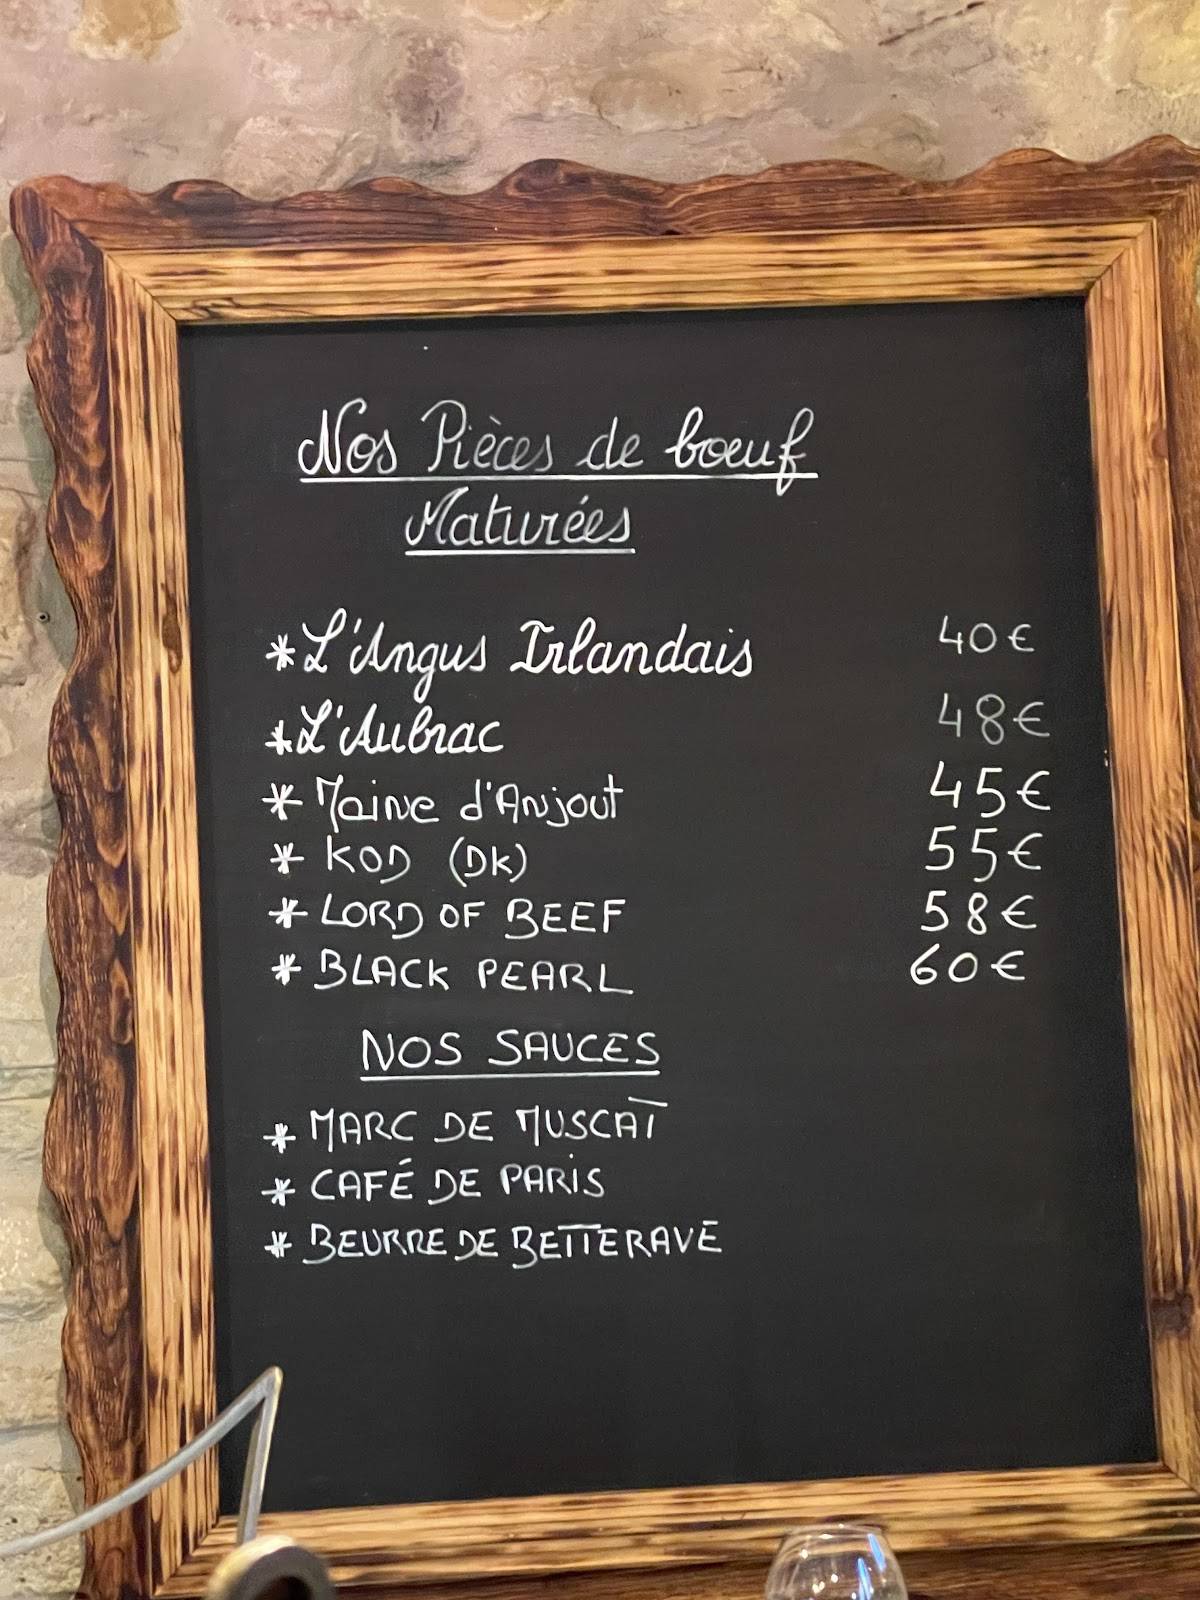 Nos Pièces de bœuf
Maturées
* L'Angus Irlandais 40€
* L'Aubrac 48€
* Maine d'Anjout 45€
* KOD (DK) 55€
* LORD OF BEEF 58€
* BLACK PEARL 60€
NOS SAUCES
* MARC DE MUSCAT
* CAFÉ DE PARIS
* BEURRE DE BETTERAVE